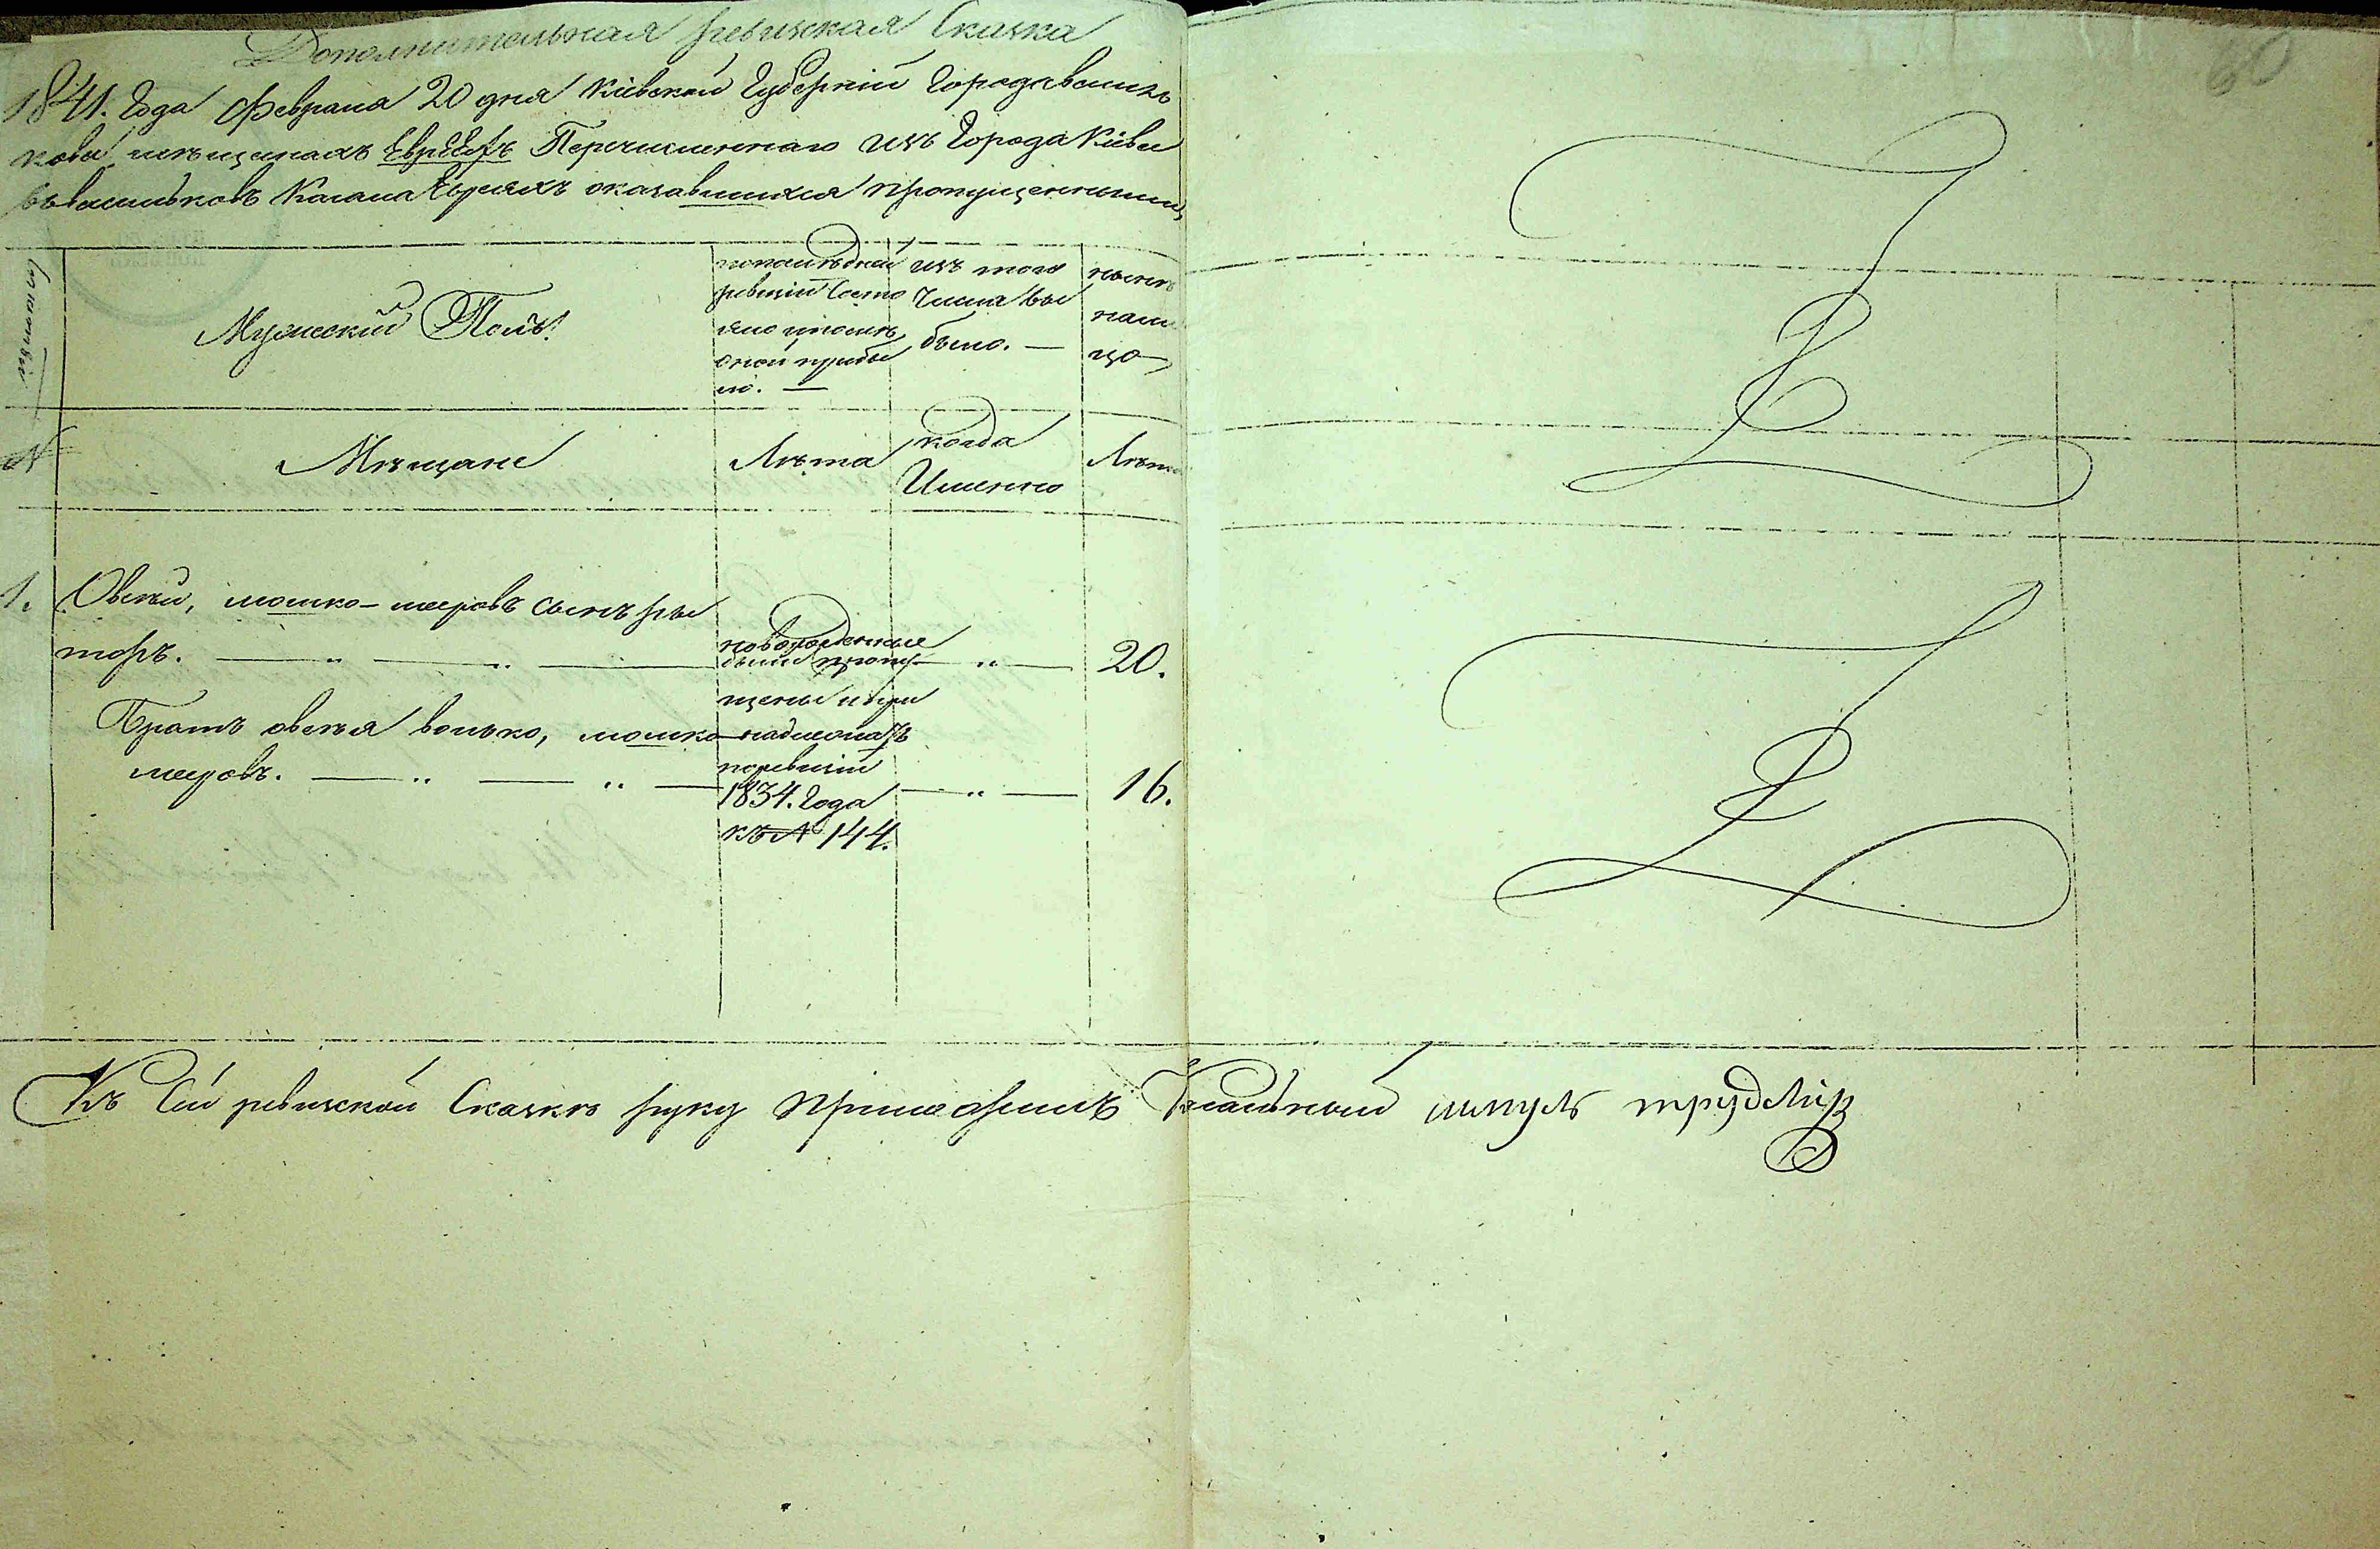 Дополнительная ревизская Сказка
1841. Года февраля 20 дня Кіевской Губерніи Города василь
кова мѣщанахъ Евреяхъ Перечисленнаго изъ Города Кіева
въ васильковъ Кагала Евреяхъ оказавшихся пропущенными
60
Мужеский Полъ.
попослѣдней
ревизіи Состо
яло ипослѣ
оной прибы
ло. —
изъ того
Числа вы
было. —
нынѣ
нали
цо
№
Мѣщане
Лѣта
когда
Именно
Лѣта
1. Овсѣй, мошко-мееровъ сынъ ры
торъ. — „ — „ —
новорожденные
были пропу
щены
поревизіи
1834. Года
къ № 144.
— „ — 20.
Братъ овсѣя волько, мошко
мееровъ. — „ — „ —
— „ — 16.
Къ Сей ревизской Сказкѣ руку приложилъ Кагальный шмуль